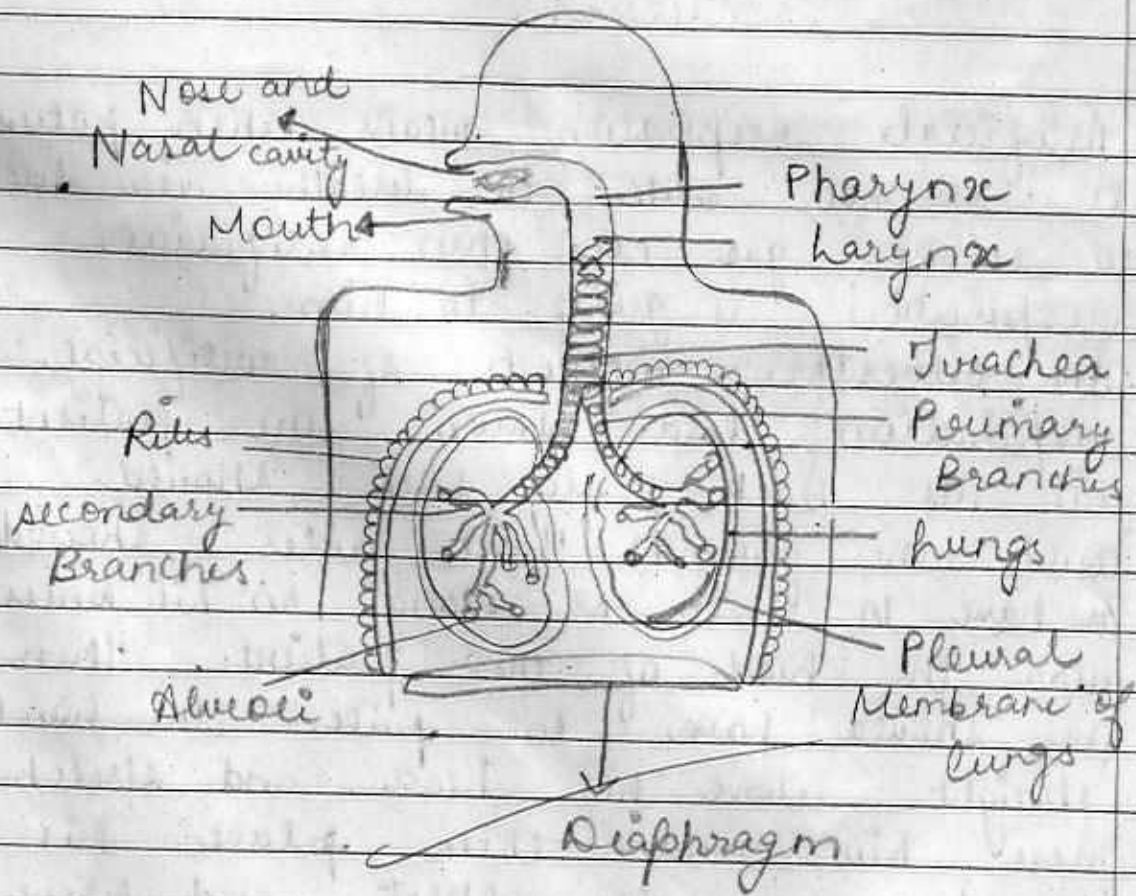 Nose and
Nasal cavity
Mouth
Pharynx
Larynx
Trachea
Primary
Branches
Ribs
secondary
Branches
Lungs
Alveoli
Pleural
Membrane of
lungs
Diaphragm